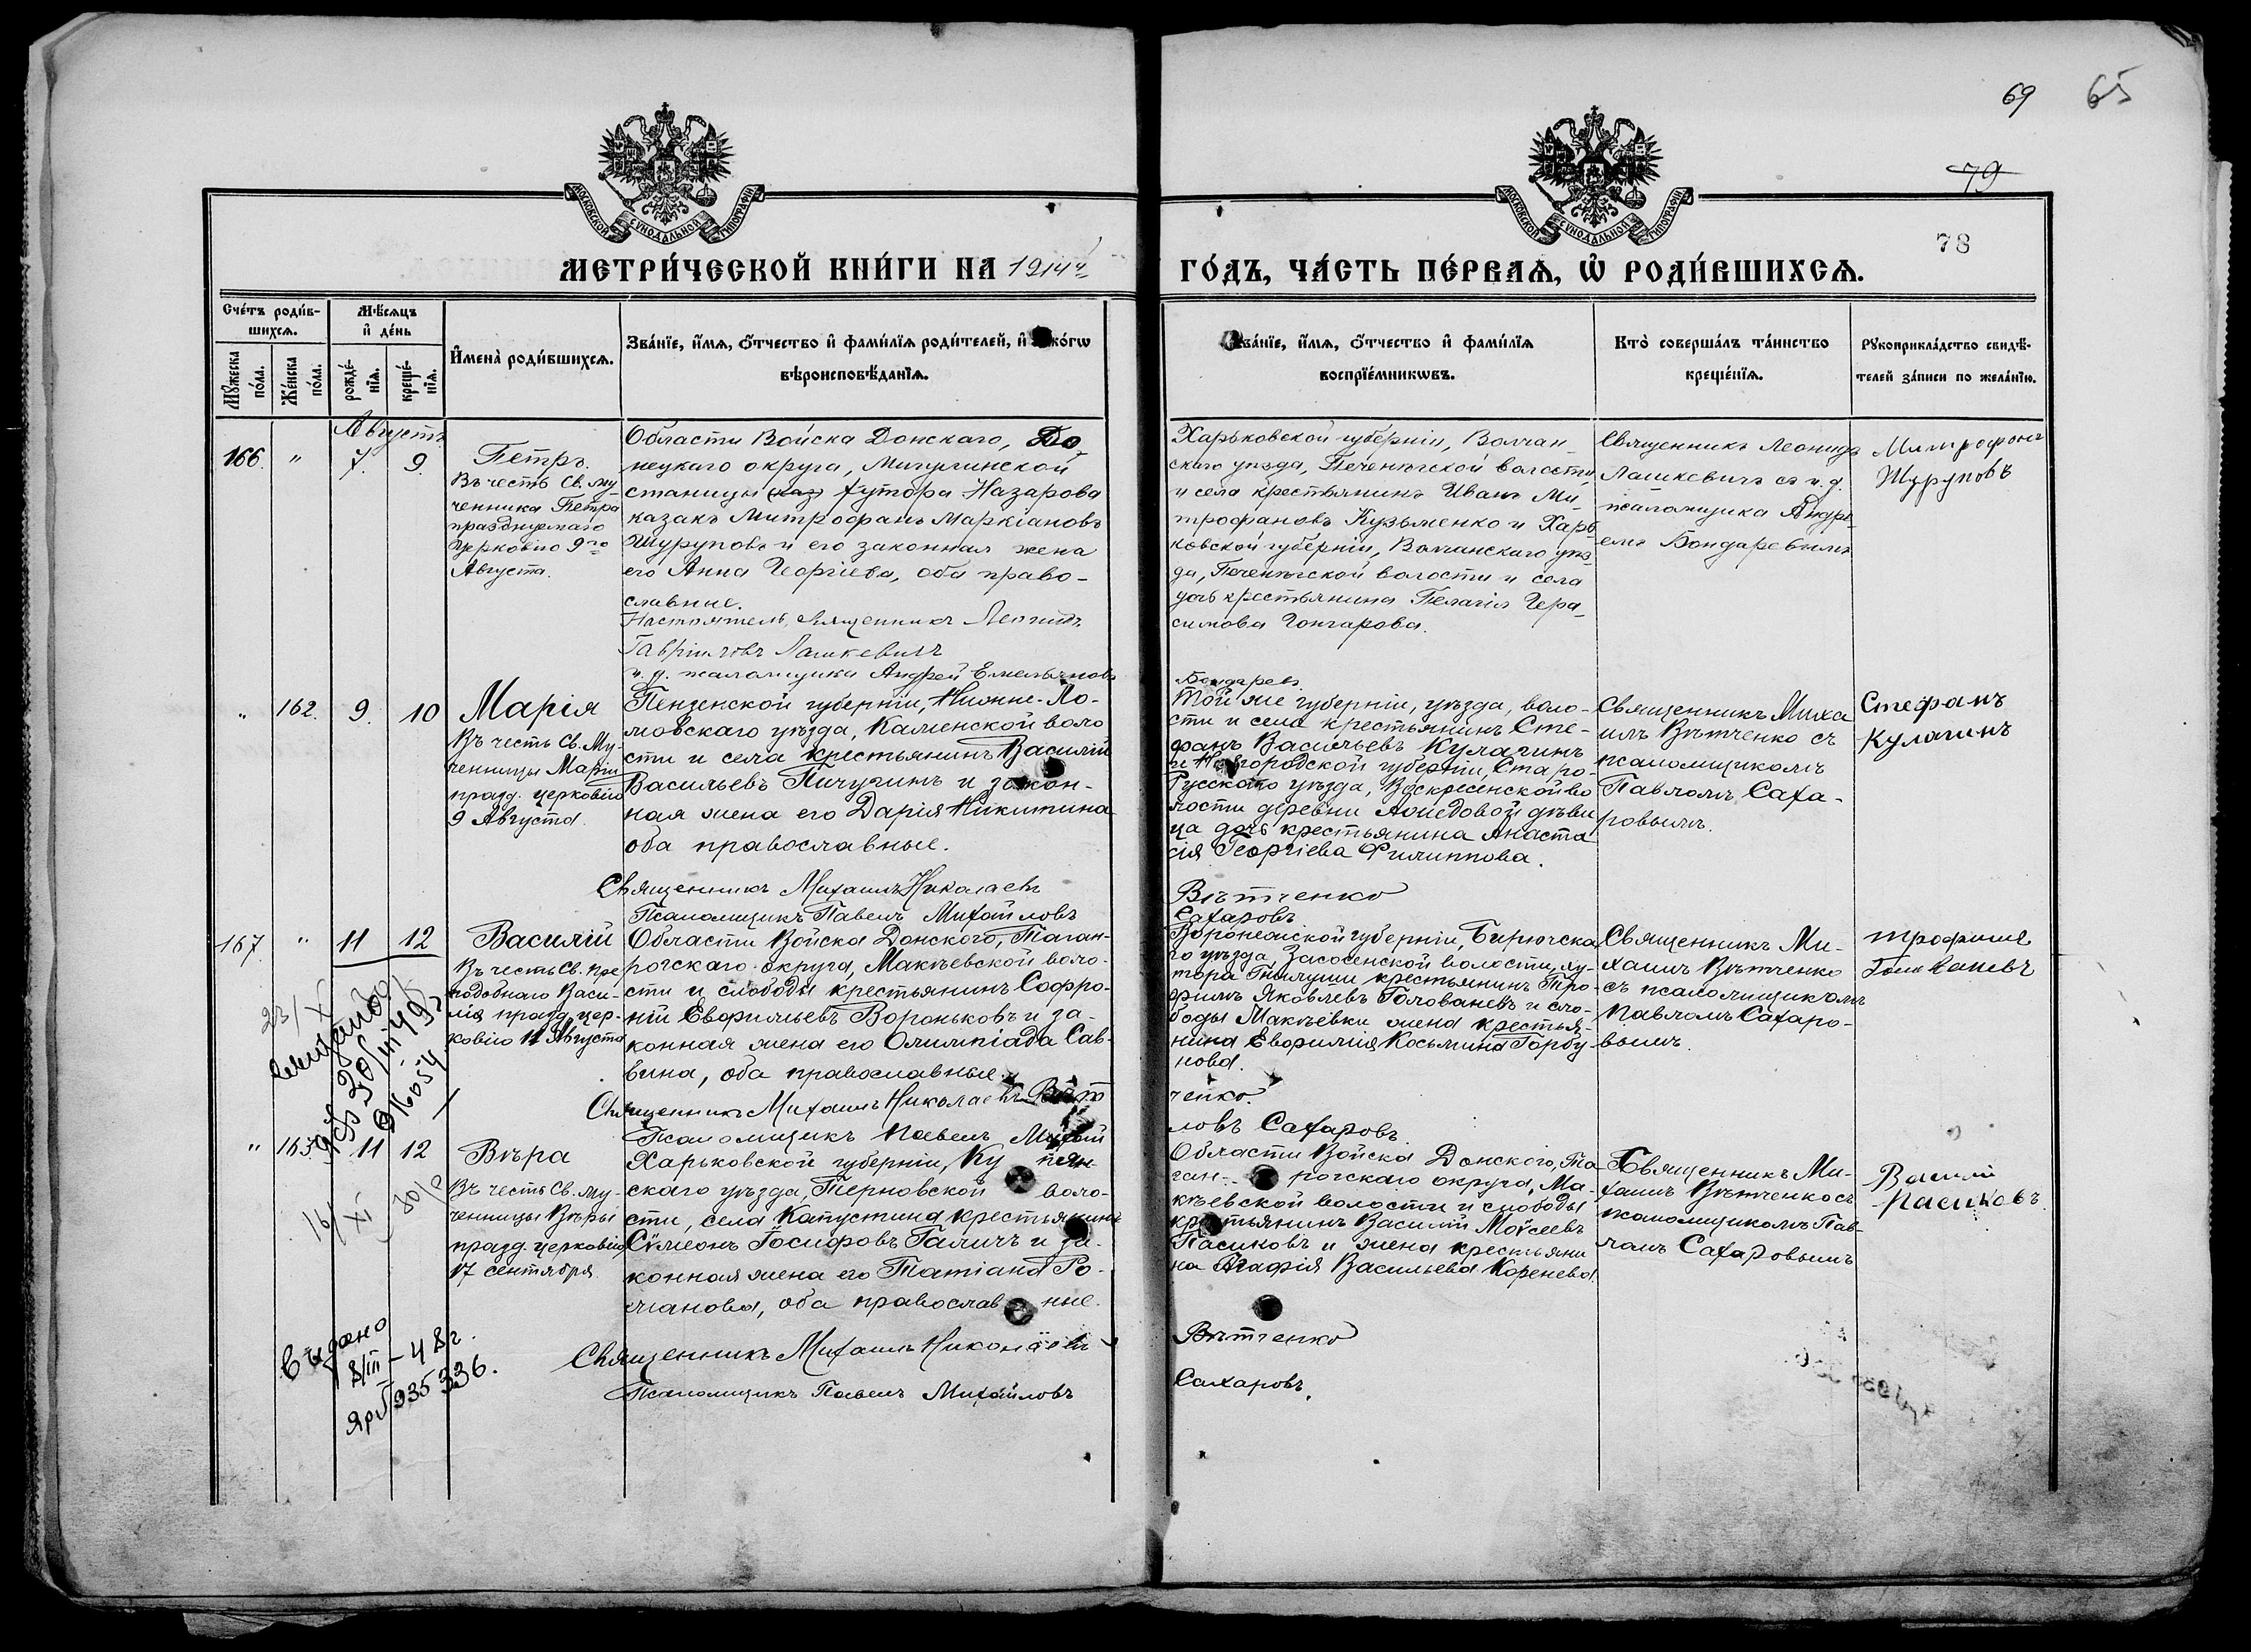 69 65
79
78
МОСКОВСКОЙ СѴНОДАЛЬНОЙ ТИПОГРАФІИ
МОСКОВСКОЙ СѴНОДАЛЬНОЙ ТИПОГРАФІИ
МЕТРИ́ЧЕСКОЙ КНИ́ГИ НА 1914й
ГО́ДЪ, ЧА́СТЬ ПЕ́РВАѦ, Ѽ РОДИ́ВШИХСѦ.
Сче́тъ роди́в-
шихсѧ.
Мꙋ́жеска
по́ла.
Же́нска
по́ла.
Мѣ́сѧцъ
и҆ де́нь
рожде́-
нїѧ.
креще́-
нїѧ.
И҆мена̀ роди́вшихсѧ.
Зва́нїе, и҆́мѧ, ѻ҆́тчество и҆ фами́лїѧ роди́телей, и҆ како́гѡ
вѣроисповѣ́данїѧ.
Зва́нїе, и҆́мѧ, ѻ҆́тчество и҆ фами́лїѧ
воспрїе́мникѡвъ.
Кто̀ соверша́лъ та́инство
креще́нїѧ.
Рꙋкоприкла́дство свидѣ́-
телей за́писи по жела́нїю.
Августъ
166. " 7. 9.
Петръ.
Въ честь Св. му-
ченника Петра
празднуемаго
Церковію 9го
Августа.
Области Войска Донскаго, До-
нецкаго округа, Мигулинской
станицы (каз) хутора Назарова
казакъ Митрофанъ Маркіановъ
Шуруповъ и его законная жена
его Анна Георгіева, оба право-
славные.
Настоятель, священникъ Леонидъ
Гавріиловъ Лашкевичъ
и. д. псаломщика Андрей Емельяновъ
Харьковской губерніи, Волчан-
скаго уѣзда, Печенѣгской волости,
и села крестьянинъ Иванъ Ми-
трофановъ Кузьменко и Харь-
ковской губерніи, Волчанскаго уѣз-
да, Печенѣгской волости и села
дочь крестьянина Пелагія Гера-
симова Гончарова.
Бондаревъ
Священникъ Леонидъ
Лашкевичъ съ и. д.
псаломщика Андре-
емъ Бондаревымъ
Митрофонъ
Шуруповъ
" 162. 9. 10
Марія
Въ честь Св. Му-
ченницы Маріи
празд. церковію
9 Августа.
Пензенской губерніи, Нижне-Ло-
мовскаго уѣзда, Каменской воло
сти и села крестьянинъ Василій
Васильевъ Пичугинъ и закон-
ная жена его Дарія Никитина
оба православные.
Священникъ Михаилъ Николаевъ
Псаломщикъ Павелъ Михайловъ
Той же губерніи, уѣзда, воло-
сти и села крестьянинъ Сте-
фанъ Васильевъ Кулагинъ
и Новгородской губерніи, Старо-
Русскаго уѣзда, Воскресенской во
лости деревни дѣви
ца дочь крестьянина Анаста
сія Георгіева Филиппова.
Вѣтченко
Сахаровъ
Священникъ Миха
илъ Вѣтченко съ
псаломщикомъ
Павломъ Саха-
ровымъ.
Стефанъ
Кулагинъ
167. " 11 12
Василій
Въ честь Св. пре
подобнаго Васи-
лія празд. цер-
ковію 11 Августа
Области Войска Донского, Таган-
рогскаго округа, Макѣевской воло-
сти и слободы крестьянинъ Софро-
ній Евфиміевъ Вороньковъ и за-
конная жена его Олимпіада Сав-
вина, оба православные.
Священникъ Михаилъ Николаевъ Вѣт
Псаломщикъ Павелъ Михай
Воронежской губерніи, Бирючска
го уѣзда, Засосенской волости, ху-
тора крестьянинъ Тро-
фимъ Яковлевъ Голованевъ и сло-
боды Макѣевки жена крестья-
нина Евфимія Косьмина Горбу-
нова.
ченко.
ловъ Сахаровъ.
Священникъ Ми-
хаилъ Вѣтченко
съ псаломщикомъ
Павломъ Сахаро-
вымъ.
Трофимъ
Голованевъ
23/X
30/III 49
916054
" 163. 11 12
Вѣра
Въ честь Св. му-
ченницы Вѣры
празд. церковію
17 сентября
Харьковской губерніи, Ку пян-
скаго уѣзда, Терновской воло-
сти, села Капустина крестьянинъ
Сѵмеонъ Іосифовъ Галичъ и за-
конная жена его Татіана Ро-
манова, оба православ ные.
Священникъ Михаилъ Николаевъ
Псаломщикъ Павелъ Михайловъ
Области Войска Донского, Та
ган- рогскаго округа, Ма-
кѣевской волости и слободы
крестьянинъ Василій Моѵсеевъ
Пасиковъ и жена крестьяни
на Агафія Васильева Коренева.
Вѣтченко
Сахаровъ.
Священникъ Ми-
хаилъ Вѣтченко съ
псаломщикомъ Пав-
ломъ Сахаровымъ
Василій
Пасиковъ
16/XI
30/
Выдано
8/III - 48г.
935336.